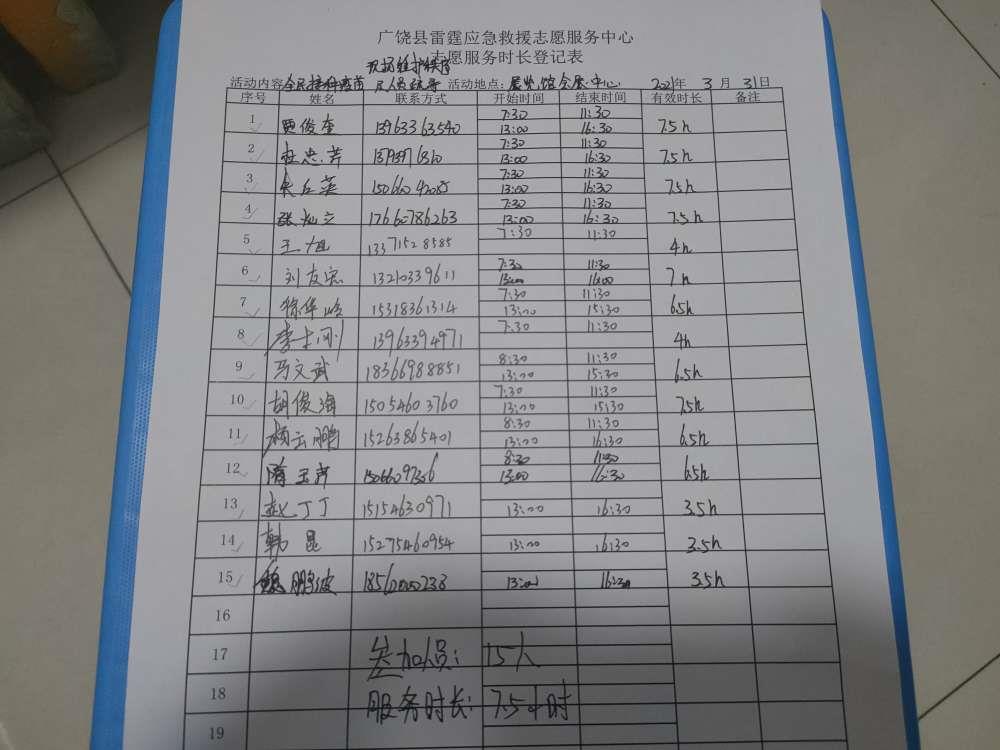 广饶县雷霆应急救援志愿服务中心
志愿服务时长登记表
现场维护秩序
活动内容全民接种疫苗 及人员疏导 活动地点:展览馆会展中心 2021年 3 月 31 日
序号 姓名 联系方式 开始时间 结束时间 有效时长 备注
1 贾俊奎 13963363540 7:30 11:30 13:00 16:30 7.5h
2 杜忠芳 7:30 11:30 13:00 16:30 7.5h
3 7:30 11:30 13:00 16:30 7.5h
4 17660786263 7:30 11:30 13:00 16:30 7.5h
5 王旭 13371528585 7:30 11:30 4h
6 刘友忠 13210339611 7:30 11:30 13:00 16:00 7h
7 徐华 15318361314 7:30 11:30 13:00 15:30 6.5h
8 李士刚 13963394971 7:30 11:30 4h
9 马文武 18366988851 8:30 11:30 13:00 15:30 6.5h
10 胡俊海 15054603760 7:30 11:30 13:00 15:30 7.5h
11 杨云鹏 15263865401 8:30 11:30 13:00 16:30 6.5h
12 隋玉芹 8:30 11:30 13:00 16:30 6.5h
13 赵丁丁 15154630971 13:00 16:30 3.5h
14 韩昆 15275460954 13:00 16:30 3.5h
15 魏鹏波 18562000238 13:00 16:30 3.5h
16
17 参加人员: 15人
18 服务时长: 7.5小时
19